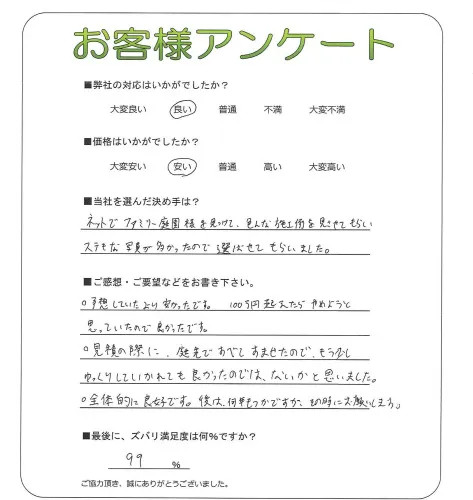 お客様アンケート
■弊社の対応はいかがでしたか？
大変良い 良い 普通 不満 大変不満
■価格はいかがでしたか？
大変安い 安い 普通 高い 大変高い
■当社を選んだ決め手は？
ネットでファミリー庭園様を見つけて、色んな施工術を見させてもらい
ステキな写真が多かったので選ばせてもらいました。
■ご感想・ご要望などをお書き下さい。
○予想していたより安かったです。 100万円超えたらやめようと
思っていたので良かったです。
○見積の際に、庭先ですべてすませたので、もう少し
ゆっくりしていかれても良かったのでは、ないかと思いました。
○全体的に良好です。後は、何年もつかですが、その時にお願いします。
■最後に、ズバリ満足度は何％ですか？
99 ％
ご協力頂き、誠にありがとうございました。